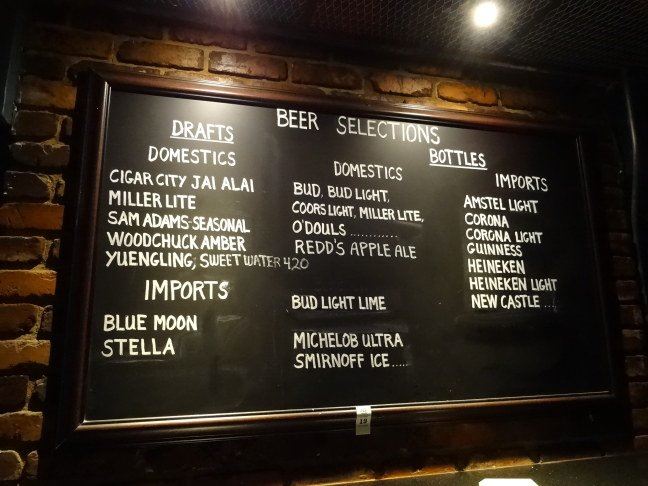 BEER SELECTIONS
DRAFTS
DOMESTICS
CIGAR CITY JAI ALAI
MILLER LITE
SAM ADAMS-SEASONAL
WOODCHUCK AMBER
YUENGLING, SWEET WATER 420
IMPORTS
BLUE MOON
STELLA
BOTTLES
DOMESTICS
BUD, BUD LIGHT,
COORS LIGHT, MILLER LITE,
O'DOULS ............
REDD'S APPLE ALE
BUD LIGHT LIME
MICHELOB ULTRA
SMIRNOFF ICE.....
IMPORTS
AMSTEL LIGHT
CORONA
CORONA LIGHT
GUINNESS
HEINEKEN
HEINEKEN LIGHT
NEW CASTLE ...
19